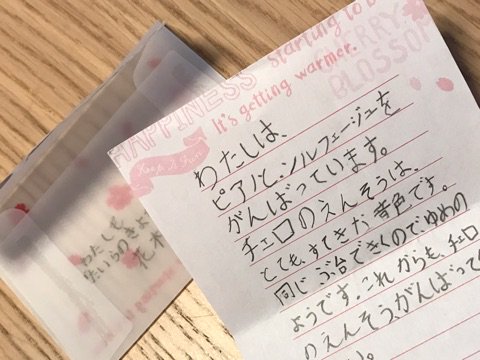 starting to b
CHERRY
BLOSSO
HAPPINESS
It's getting warmer.
わたしは、
ピアノと、ソルフェージュを
がんばっています。
チェロのえんそうは、
とても、すてきな音色です。
同じぶ台できくので、ゆめの
ようです。これからも、チェロ
のえんそう、がんばって